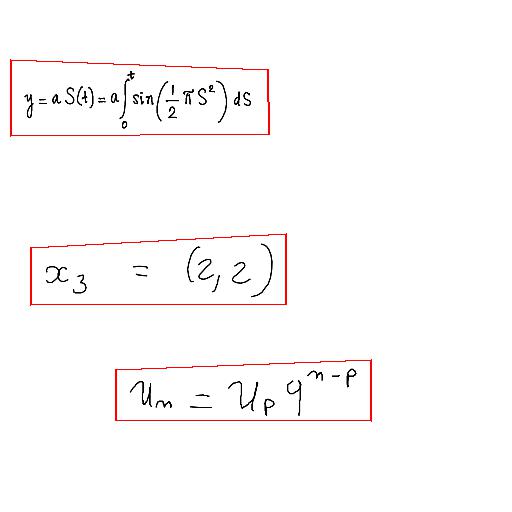 y = a S(t) = a ∫₀ᵗ sin(½ π S²) dS
x₃ = (2, 2)
uₙ = uₚ qⁿ⁻ᵖ